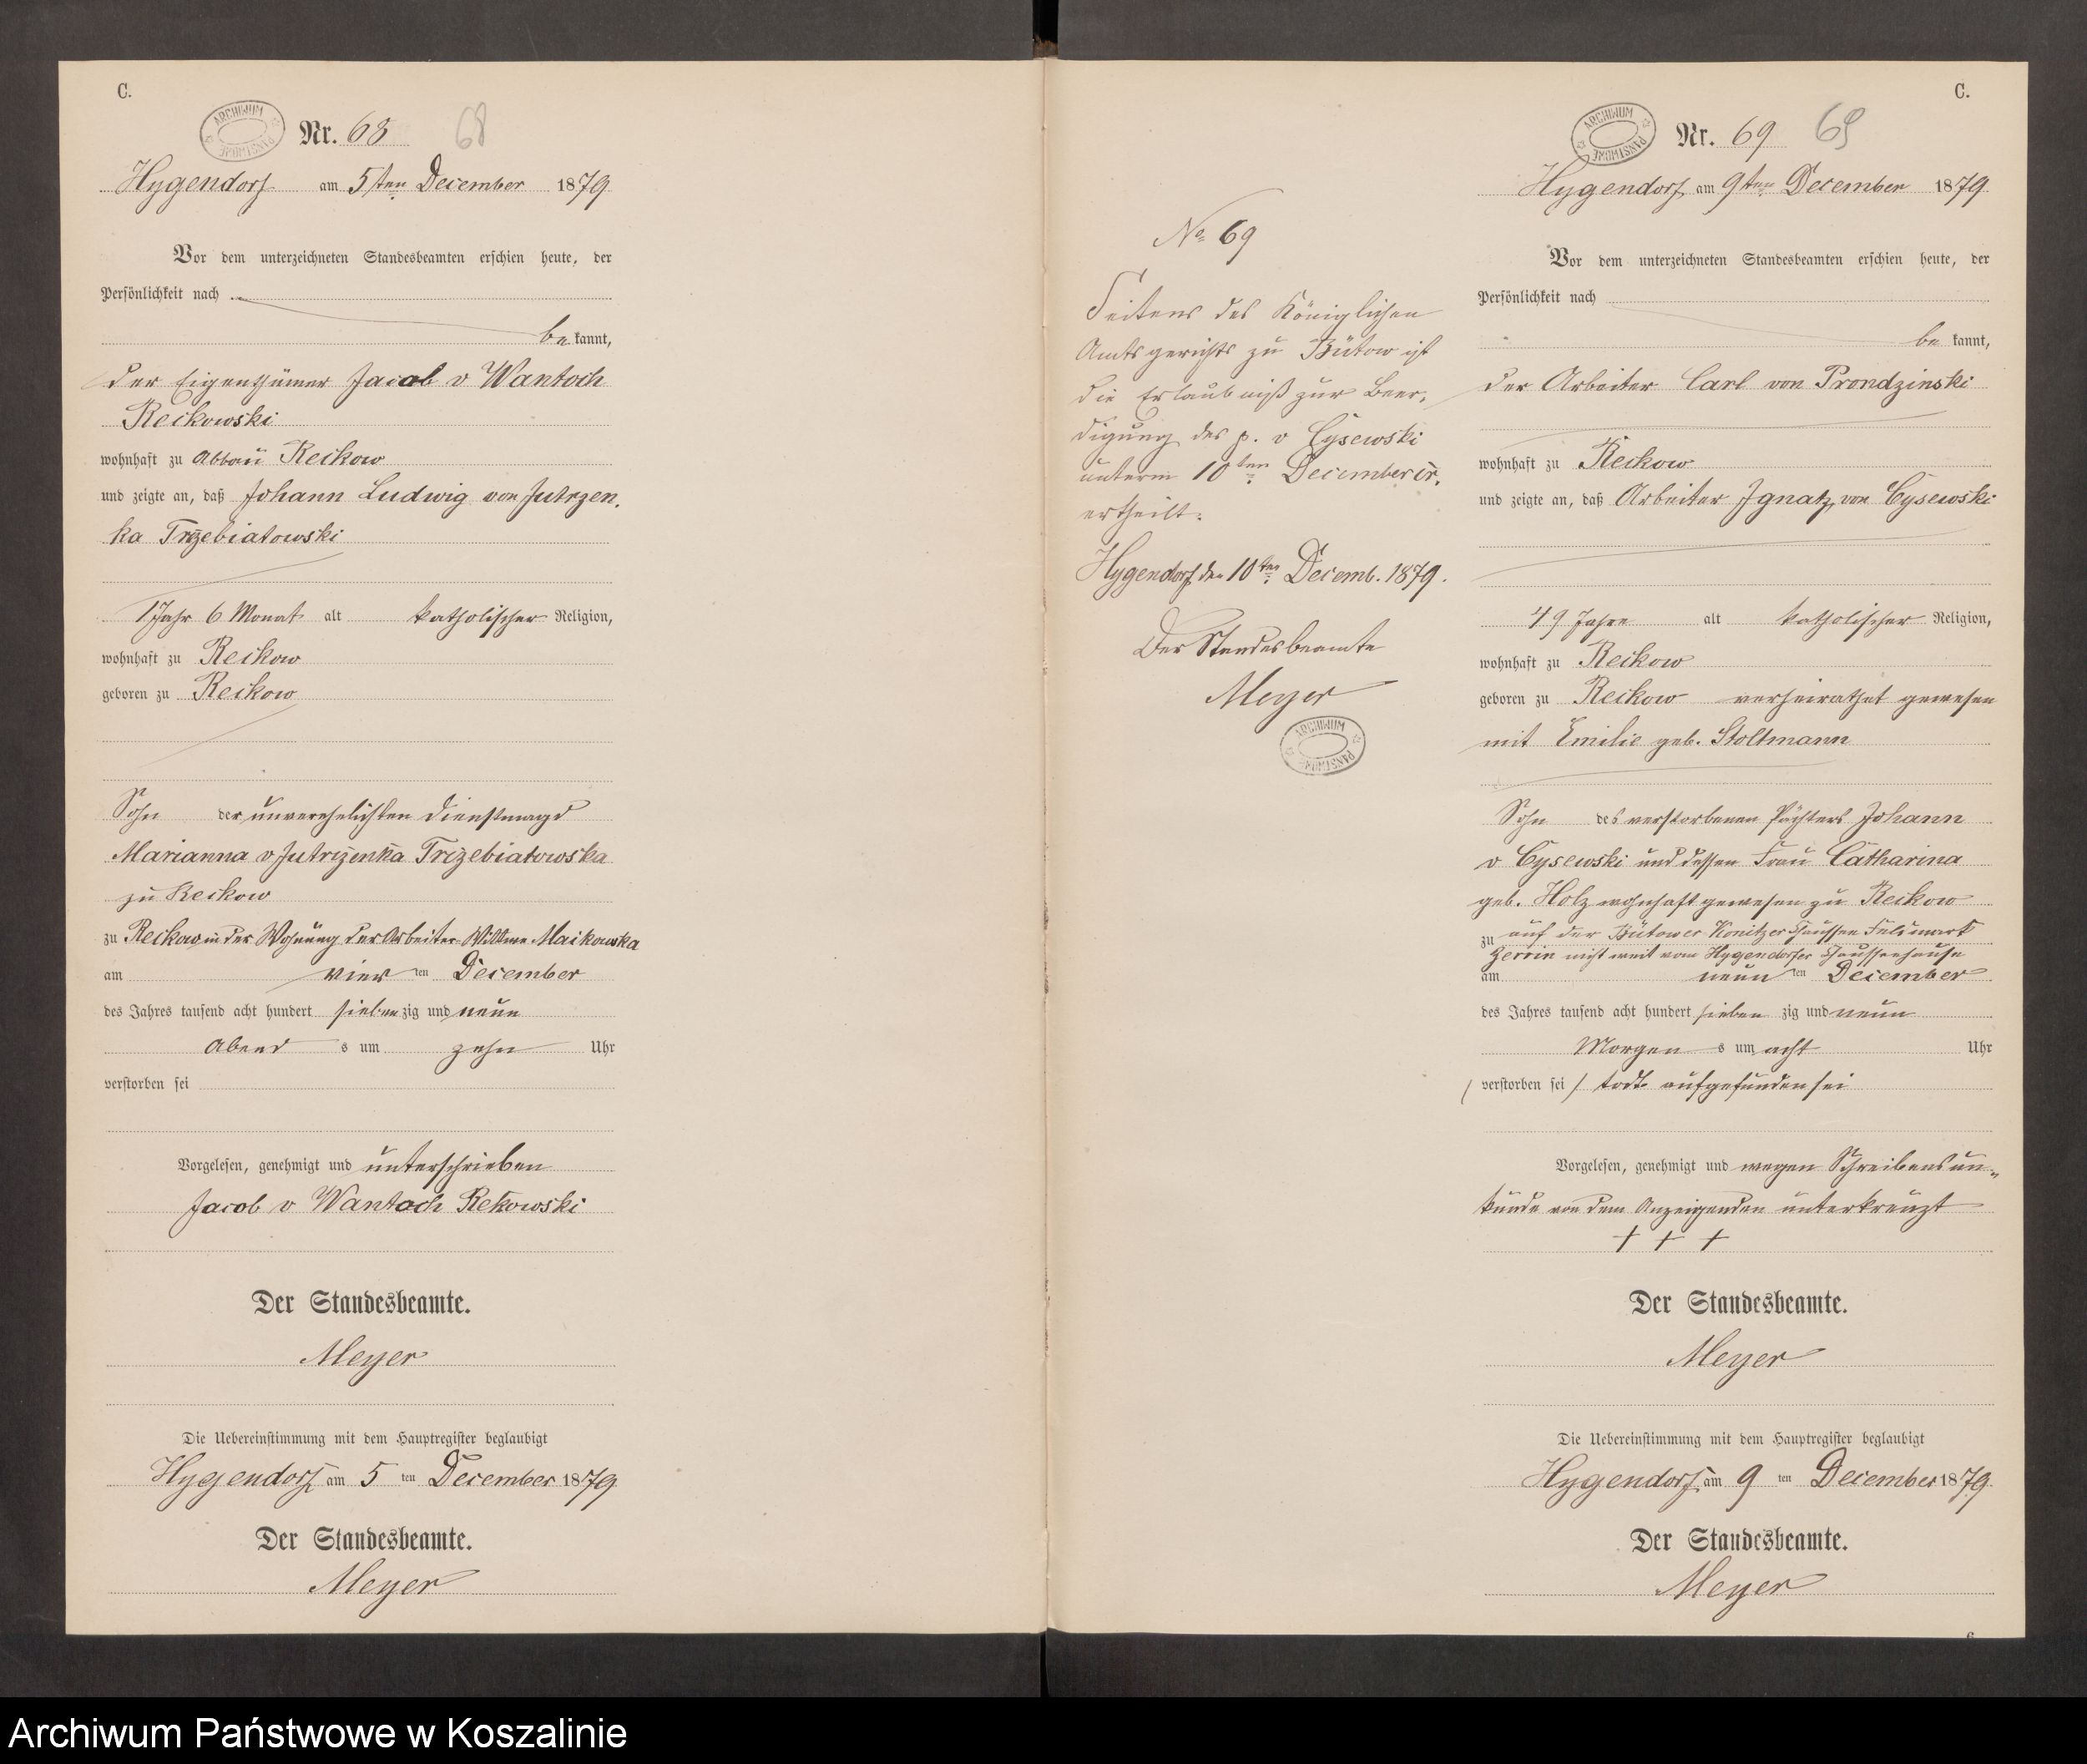 C.
ARCHIWUM PAŃSTWOWE
Nr. 68 68
Hygendorf am 5ten December 1879
Vor dem unterzeichneten Standesbeamten erschien heute, der
Persönlichkeit nach
be kannt,
der Eigenthümer Jacob v Wantoch
Reckowski
wohnhaft zu Abbau Reckow
und zeigte an, daß Johann Ludwig von Jutrzen-
ka Trzebiatowski
1 Jahr 6 Monat alt katholischer Religion,
wohnhaft zu Reckow
geboren zu Reckow
Sohn der unverehelichten Dienstmagd
Marianna v Jutrzenka Trzebiatowska
zu Reckow
zu Reckow in der Wohnung der Arbeiter-Wittwe Maikowska
am vier ten December
des Jahres tausend acht hundert sieben zig und neun
Abend s um zehn Uhr
verstorben sei
Vorgelesen, genehmigt und unterschrieben
Jacob v Wantoch Rekowski
Der Standesbeamte.
Meyer
Die Uebereinstimmung mit dem Hauptregister beglaubigt
Hygendorf am 5 ten December 1879
Der Standesbeamte.
Meyer
No 69
Seitens des Königlichen
Amtsgerichts zu Bütow ist
die Erlaubniß zur Beer-
digung des p. v Cysewski
unterm 10ten December cr.
ertheilt.
Hygendorf den 10ten Decemb. 1879.
Der Standesbeamte
Meyer
ARCHIWUM PAŃSTWOWE
C.
ARCHIWUM PAŃSTWOWE
Nr. 69 69
Hygendorf am 9ten December 1879
Vor dem unterzeichneten Standesbeamten erschien heute, der
Persönlichkeit nach
be kannt,
der Arbeiter Carl von Prondzinski
wohnhaft zu Reckow
und zeigte an, daß Arbeiter Ignatz von Cysewski
49 Jahre alt katholischer Religion,
wohnhaft zu Reckow
geboren zu Reckow verheirathet gewesen
mit Emilie geb. Stoltmann
Sohn des verstorbenen Pächters Johann
v Cysewski und dessen Frau Catharina
geb. Holz wohnhaft gewesen zu Reckow
zu auf der Bütower Konitzer Chaussee Feldmark
Zerrin nicht weit vom Hygendorfer Chausseehause
am neun ten December
des Jahres tausend acht hundert sieben zig und neun
Morgen s um acht Uhr
(verstorben sei) todt aufgefunden sei
Vorgelesen, genehmigt und wegen Schreibensun-
kunde von dem Anzeigenden unterkreuzt
+ + +
Der Standesbeamte.
Meyer
Die Uebereinstimmung mit dem Hauptregister beglaubigt
Hygendorf am 9 ten December 1879
Der Standesbeamte.
Meyer
Archiwum Państwowe w Koszalinie